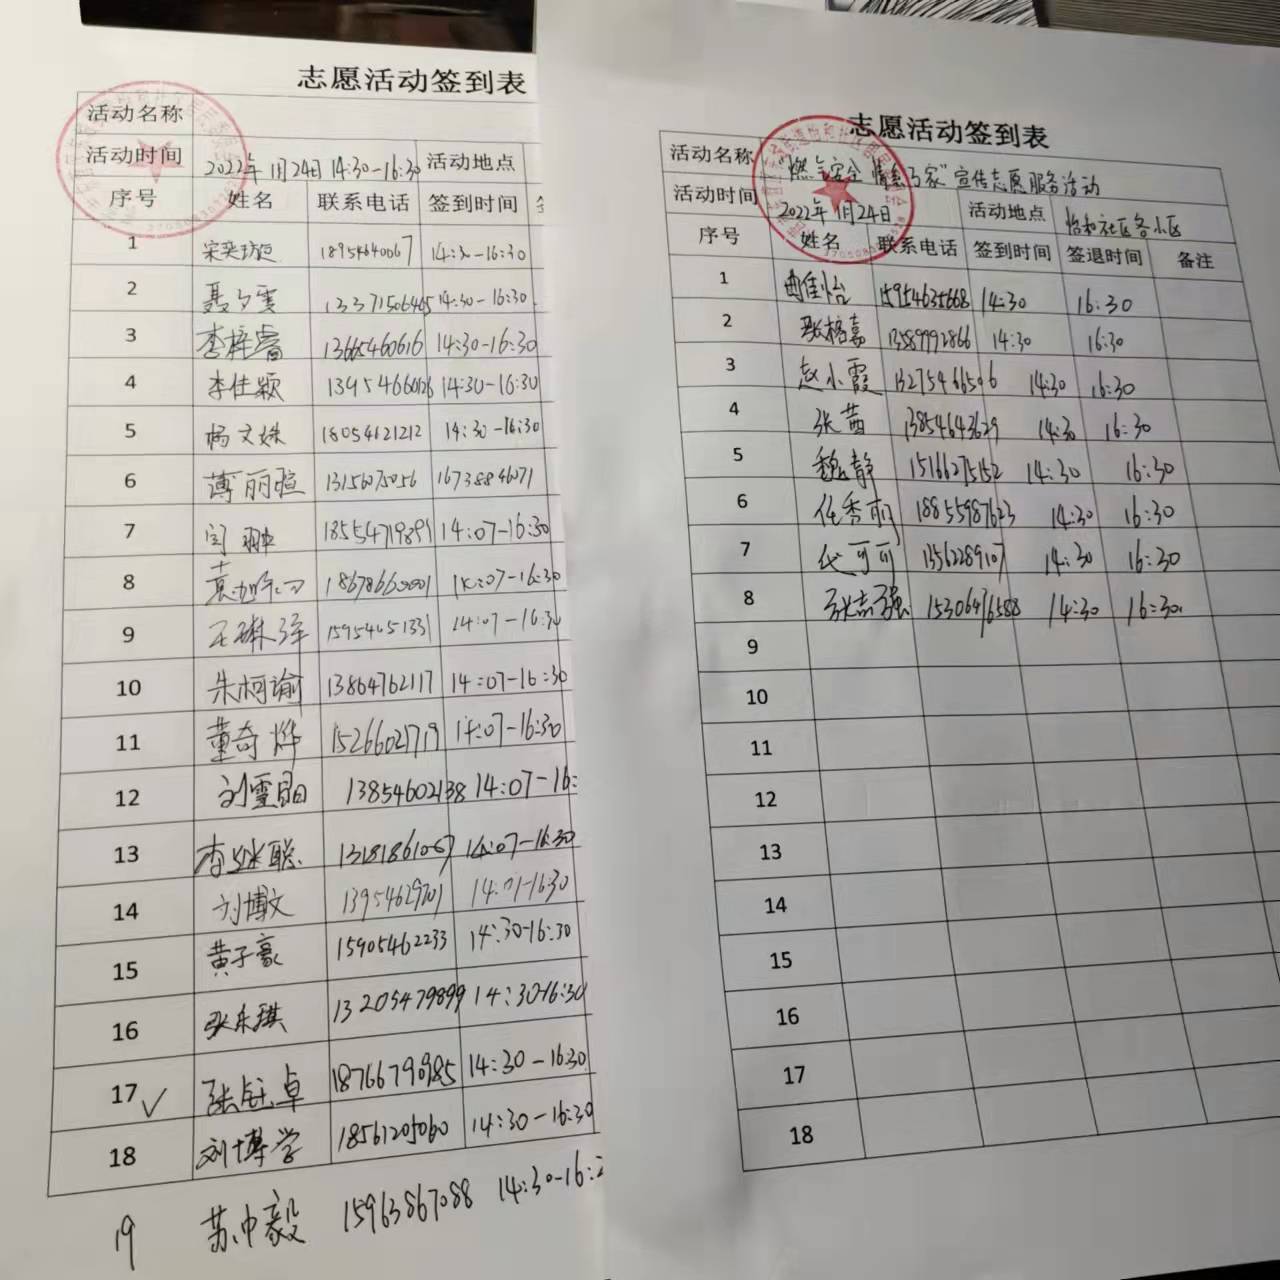 志愿活动签到表
活动名称
活动时间 2022年1月24日 14:30-16:30 活动地点
序号 姓名 联系电话 签到时间
1 14:30-16:30
2 14:30-16:30
3 李梓睿 13665460616 14:30-16:30
4 李佳颖 14:30-16:30
5 杨文姝 18054621212 14:30-16:30
6 薄丽暄 13156075056 16738846071
7 闫翀 18554719891 14:07-16:30
8 14:07-16:30
9 14:07-16:30
10 朱柯谕 13864762117 14:07-16:30
11 董奇烨 15266021719 14:07-16:30
12 13854602138 14:07-16:
13 14:07-16:30
14 刘博文 16:30
15 黄子豪 15905462233 14:30-16:30
16 张东琪 13205479899 14:30-16:30
17 张钰卓 14:30-16:30
18 刘博学 18561205060 14:30-16:30
19 苏中毅 15963867088 14:30-16:
志愿活动签到表
活动名称 “燃气安全 情系万家”宣传志愿服务活动
活动时间 2022年1月24日 活动地点 怡和社区各小区
序号 姓名 联系电话 签到时间 签退时间 备注
1 曲佳怡 15954635668 14:30 16:30
2 13589992866 14:30 16:30
3 赵小霞 14:30 16:30
4 张茜 13854643629 14:30 16:30
5 魏静 15166275152 14:30 16:30
6 任秀丽 18855987623 14:30 16:30
7 代可可 13562289107 14:30 16:30
8 张志强 15306476588 14:30 16:30
9
10
11
12
13
14
15
16
17
18